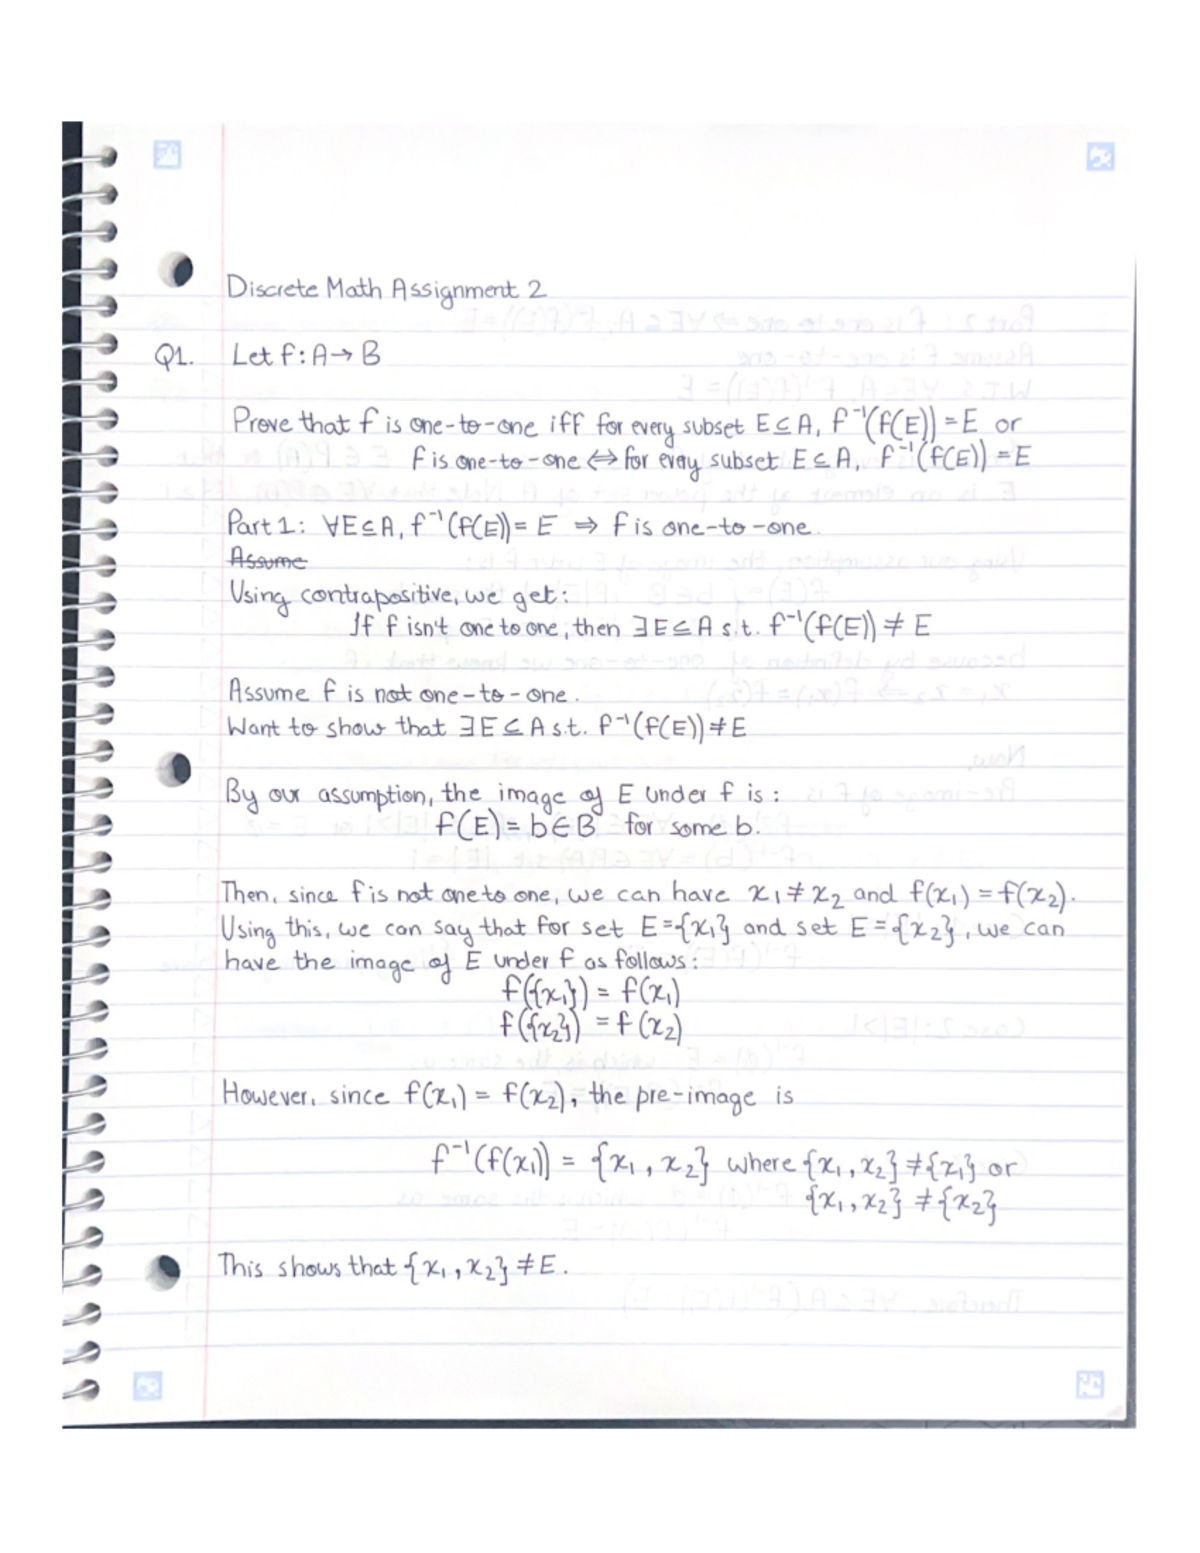 Discrete Math Assignment 2
Q1. Let f: A → B
Prove that f is one-to-one iff for every subset E ⊆ A, f⁻¹(f(E)) = E or
f is one-to-one ⇔ for every subset E ⊆ A, f⁻¹(f(E)) = E
Part 1: ∀E⊆A, f⁻¹(f(E)) = E ⇒ f is one-to-one.
Assume
Using contrapositive, we get:
If f isn't one to one, then ∃E⊆A s.t. f⁻¹(f(E)) ≠ E
Assume f is not one-to-one.
Want to show that ∃E⊆A s.t. f⁻¹(f(E)) ≠ E
By our assumption, the image of E under f is:
f(E) = b∈B for some b.
Then, since f is not one to one, we can have x₁ ≠ x₂ and f(x₁) = f(x₂).
Using this, we can say that for set E = {x₁} and set E = {x₂}, we can
have the image of E under f as follows:
f({x₁}) = f(x₁)
f({x₂}) = f(x₂)
However, since f(x₁) = f(x₂), the pre-image is
f⁻¹(f(x₁)) = {x₁, x₂} where {x₁, x₂} ≠ {x₁} or
{x₁, x₂} ≠ {x₂}
This shows that {x₁, x₂} ≠ E.